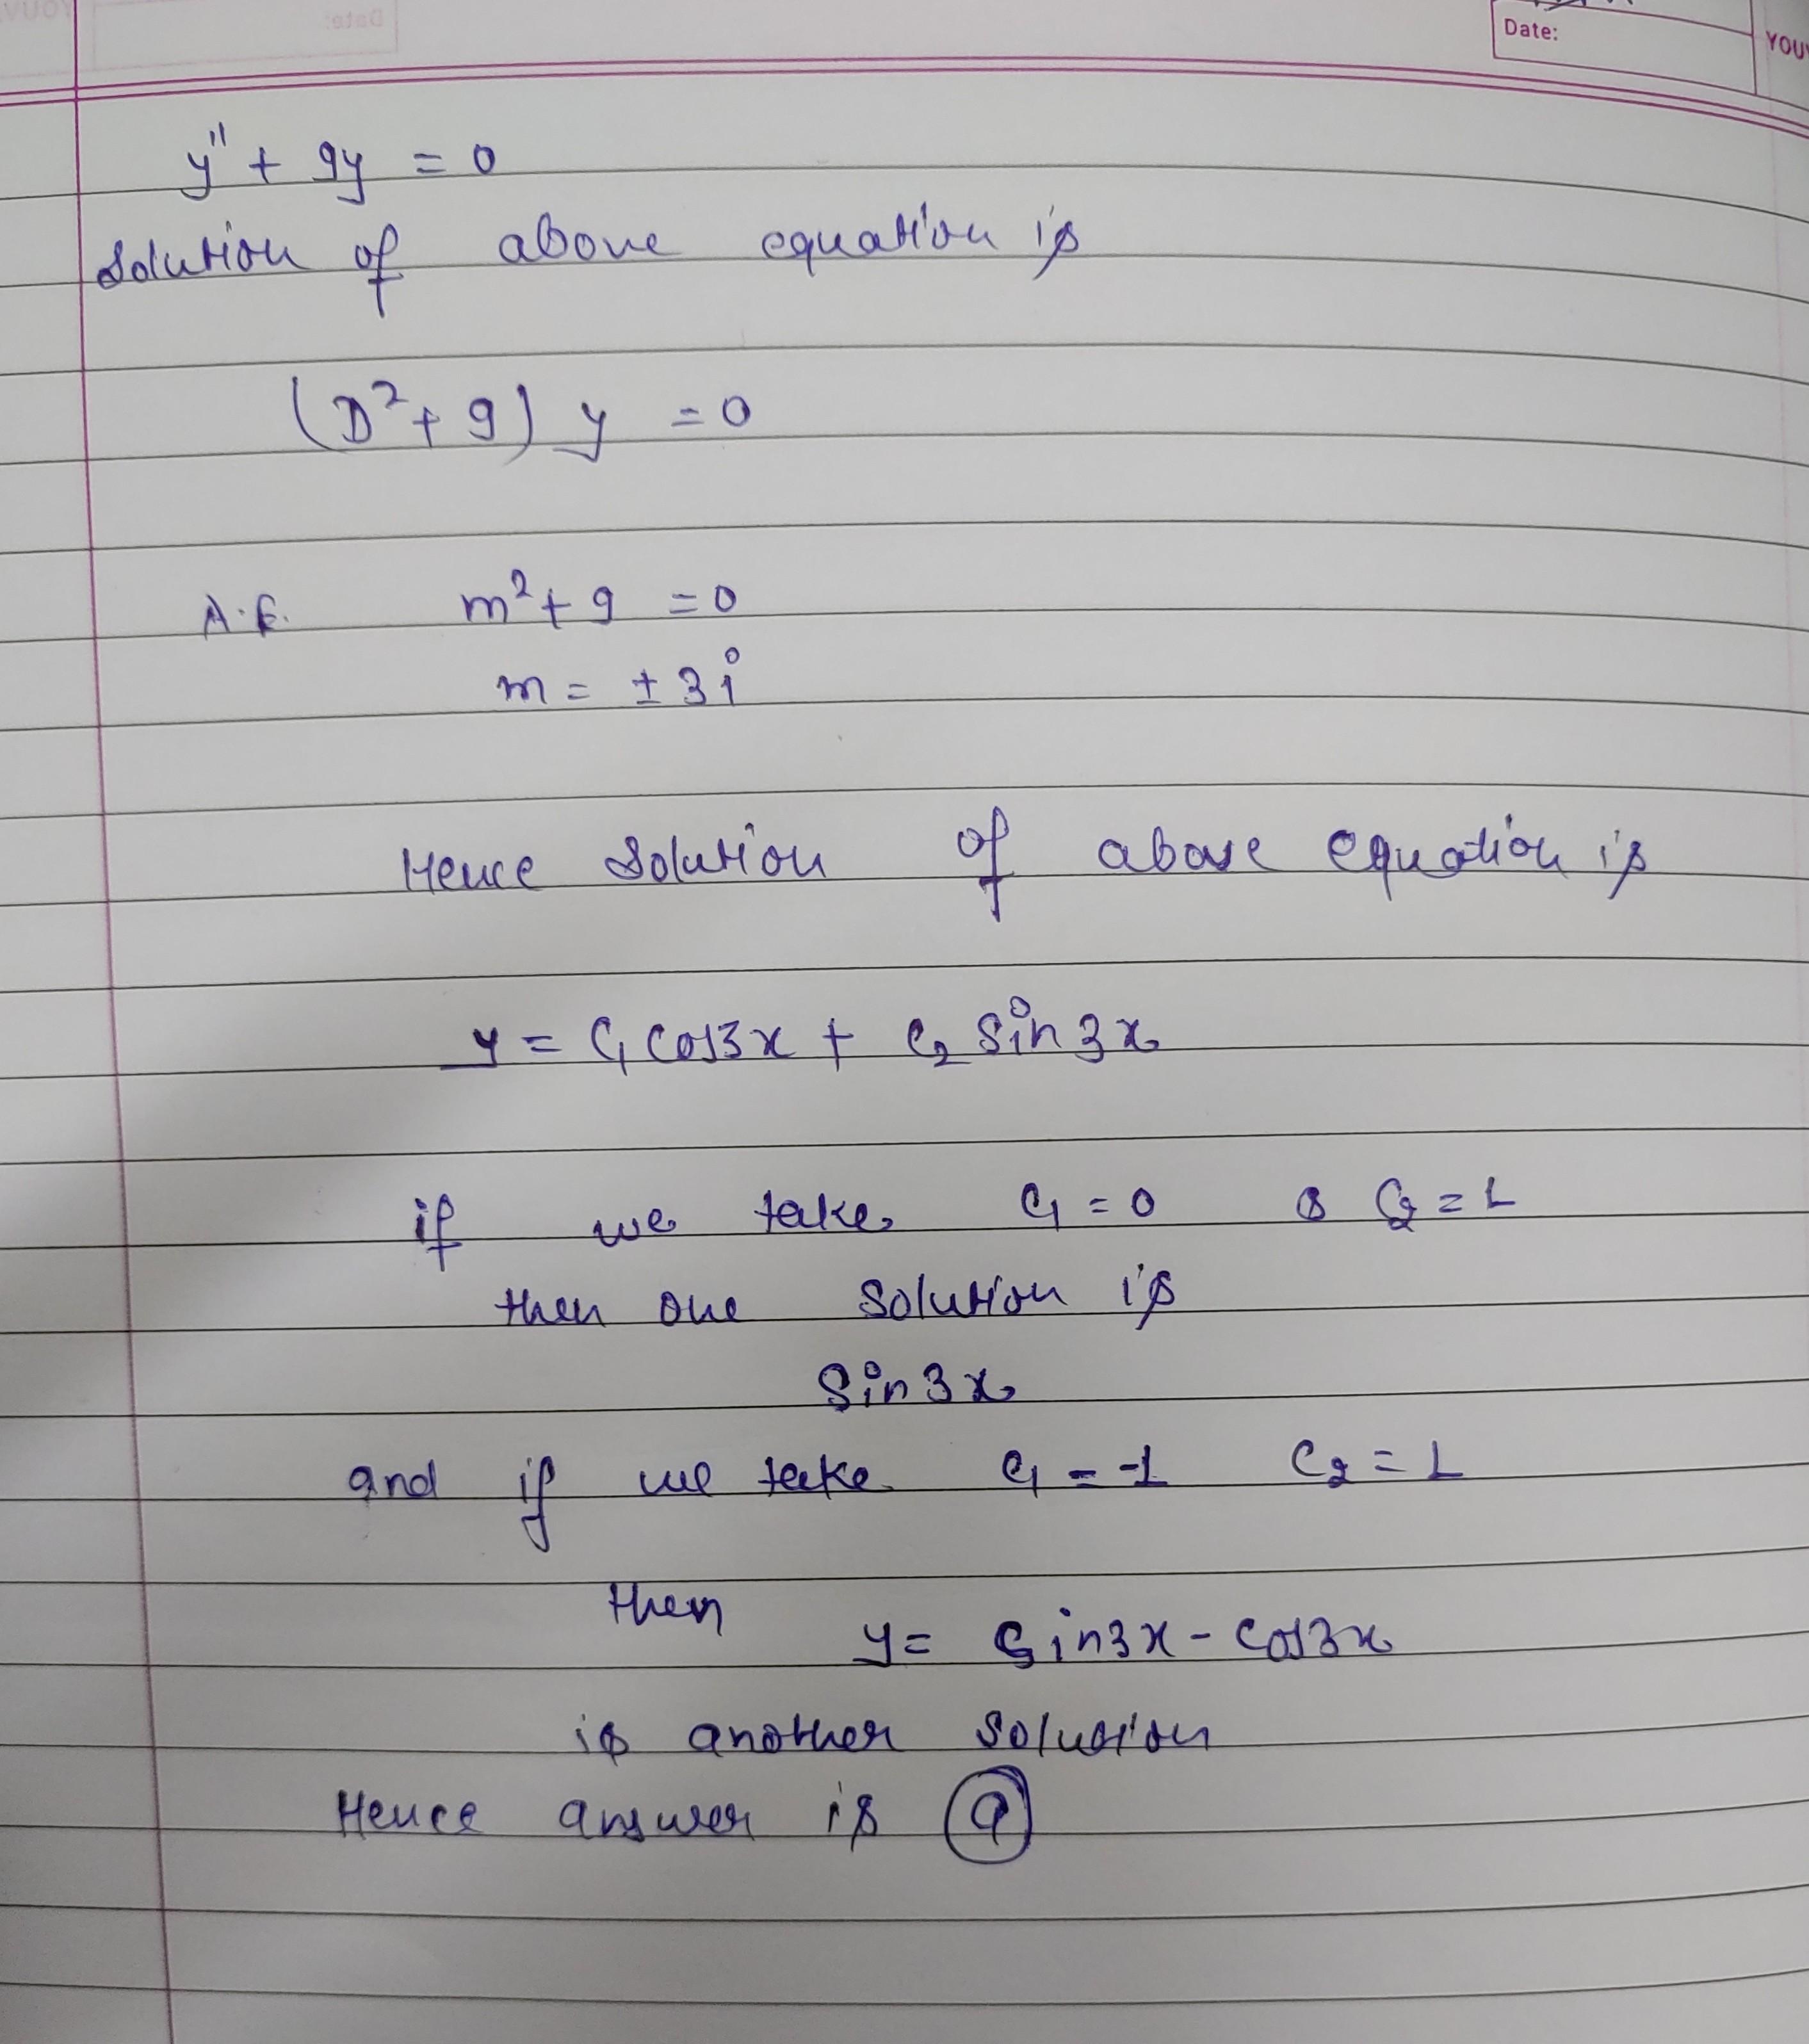 Date:
YOU
y'' + 9y = 0
Solution of above equation is
(D² + 9) y = 0
A.E. m² + 9 = 0
m = ± 3i
Hence Solution of above equation is
y = C₁ cos3x + C₂ Sin3x
if we take C₁ = 0 & C₂ = 1
then one solution is
Sin3x
and if we take C₁ = -1 C₂ = 1
then y = Sin3x - cos3x
is another solution
Hence answer is a